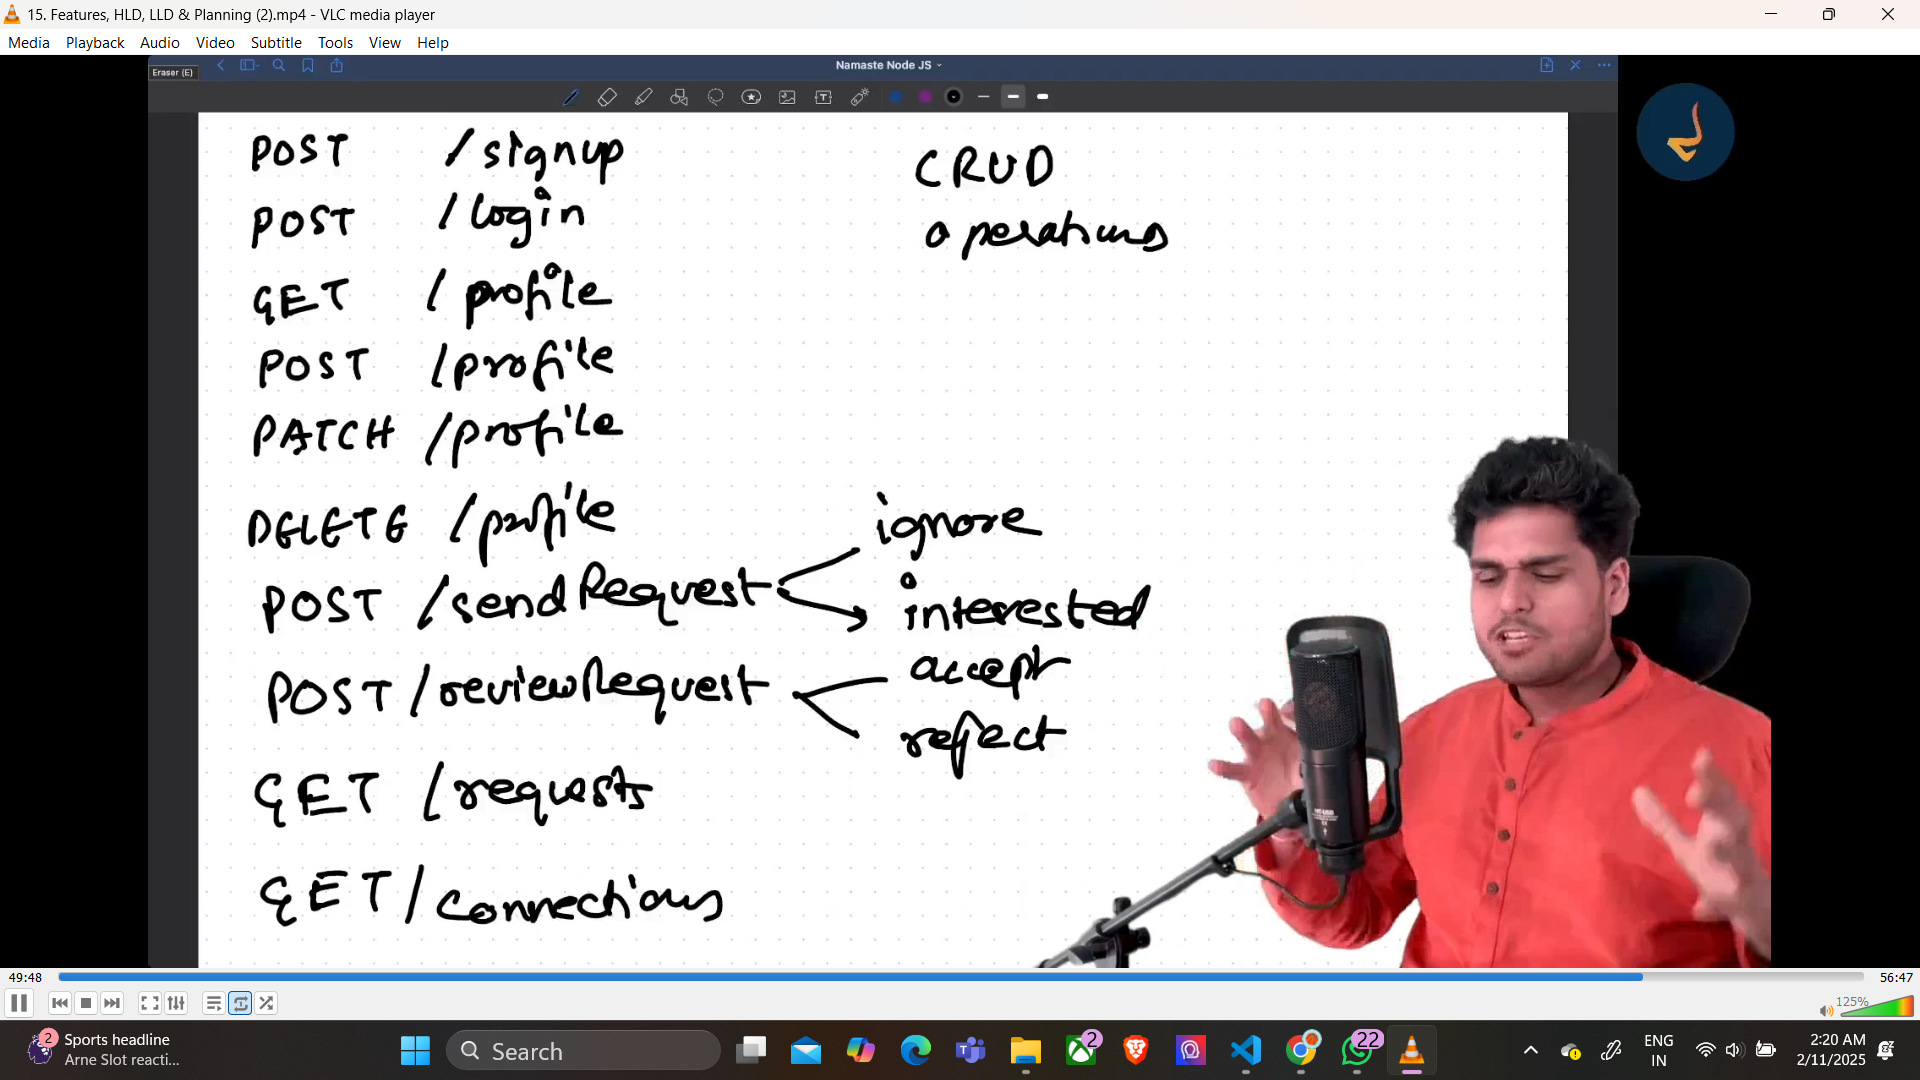 15. Features, HLD, LLD & Planning (2).mp4 - VLC media player
Media Playback Audio Video Subtitle Tools View Help
Eraser (E)
Namaste Node JS
POST /signup
POST /login
GET /profile
POST /profile
PATCH /profile
DELETE /profile
POST /sendRequest
POST /reviewRequest
GET /requests
GET /connections
CRUD
operations
ignore
interested
accept
reject
49:48
56:47
125%
2
Sports headline
Arne Slot reacti...
Search
2
22
ENG
IN
2:20 AM
2/11/2025